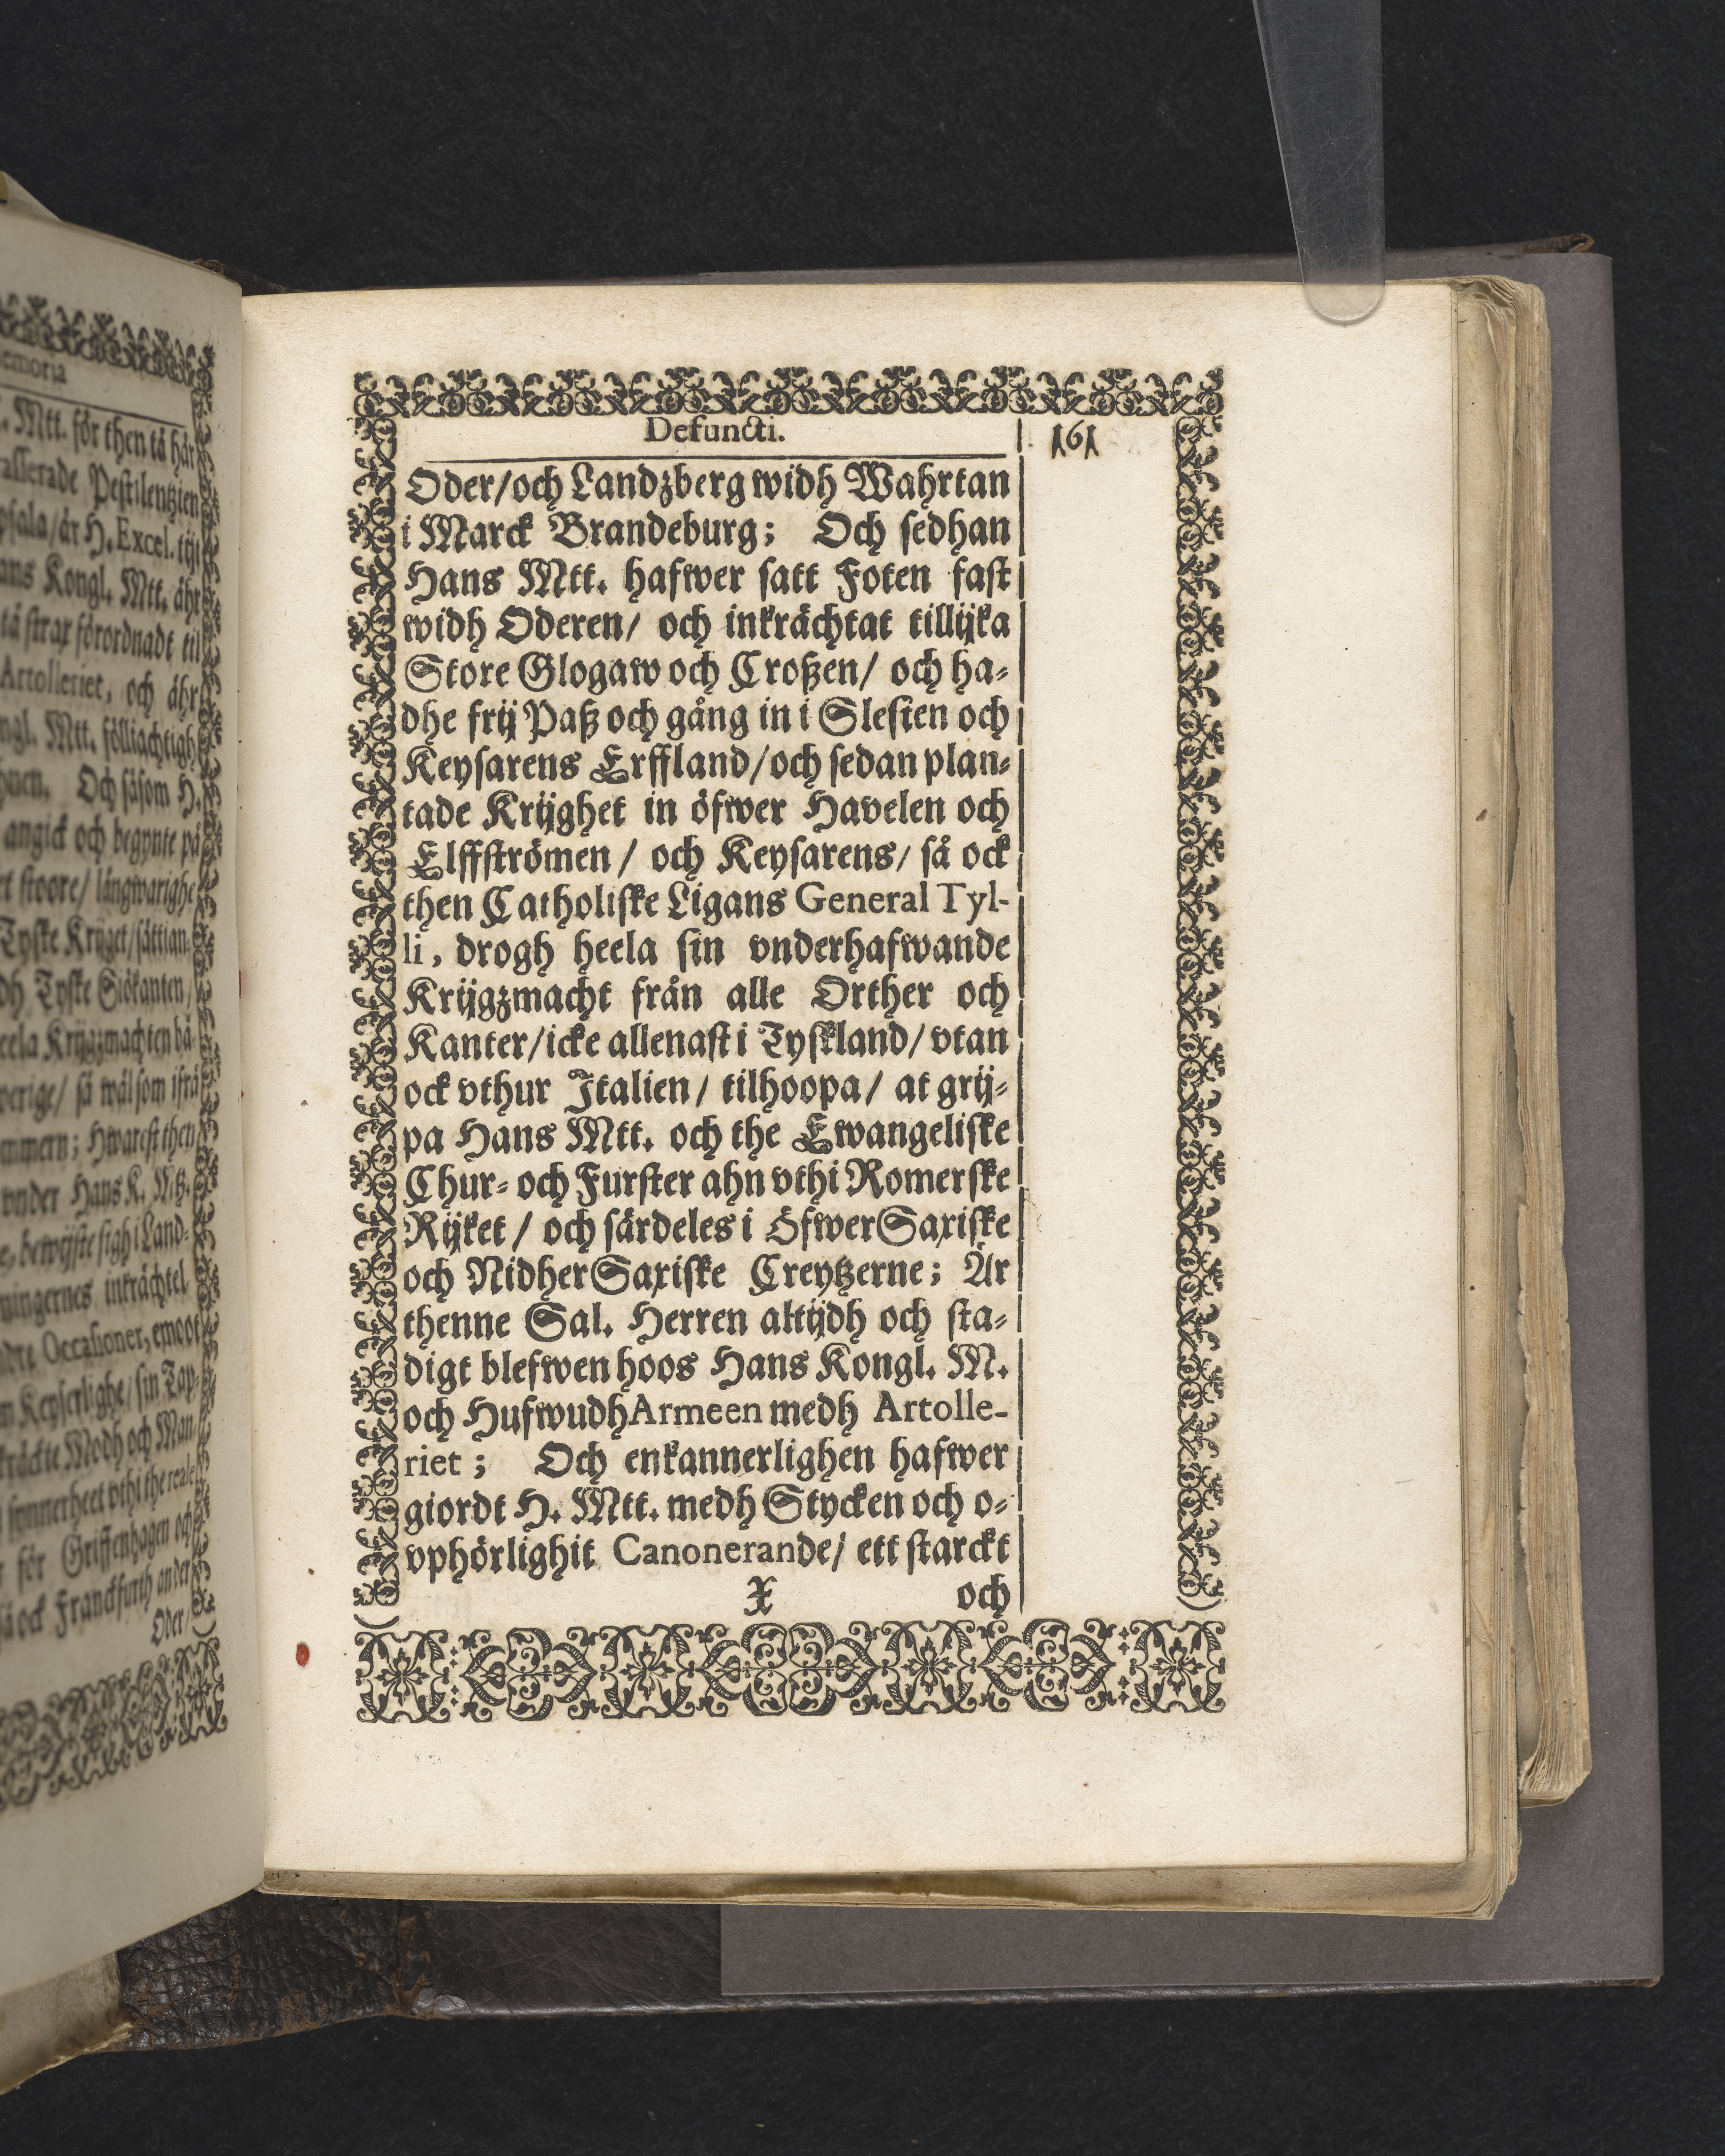 Defuncti.
161
Oder/och Landzberg widh Wahrtan
i Marck Brandeburg; Och sedhan
Hans Mtt. hafwer satt Foten fast
widh Oderen/ och inkrächtat tillijka
Store Glogaw och Croßen/ och ha-
dhe frij Paß och gång in i Slesien och
Keysarens Erffland/och sedan plan-
tade Krijghet in öfwer Havelen och
Elffströmen / och Keysarens/ så ock
then Catholiske Ligans General Tyl-
li, drogh heela sin vnderhafwande
Krijgzmacht från alle Orther och
Kanter/icke allenast i Tyskland/ vtan
ock vthur Italien/ tilhoopa/ at grij-
pa Hans Mtt. och the Ewangeliske
Chur- och Furster ahn vthi Romerske
Rijket / och särdeles i ÖfwerSaxiske
och NidherSaxiske Creytzerne; Är
thenne Sal. Herren altijdh och sta-
digt blefwen hoos Hans Kongl. M.
och HufwudhArmeen medh Artolle-
riet ; Och enkannerlighen hafwer
giordt H. Mtt. medh Stycken och o-
vphörlighit Canonerande/ ett starckt
X och
emoria
. Mtt. för then tå här
rasserade Pestilentzien
psala/är H. Excel. tijt
ans Kongl. Mtt. ähr
tå strax förordnadt til
Artolleriet, och ähr
ngl. Mtt. fölliachtigh
Och såsom H.
angick och begynte på
stoore/ långwarighe
Tyske Krijget/sättian-
dh Tyske Siökanten/
eela Krijgzmachten bå
verige/ så wäl som ifrå
mmern; Hwarest then
vnder Hans K.
bewijste sigh i Land-
ningernes inkrächtel
Occasioner, emoot
m Keyserlighe/ sin Tap-
Modh och Man
synnerheet vthi the reale
för Griffenhagen och
så ock Franckfurth an der
Oder